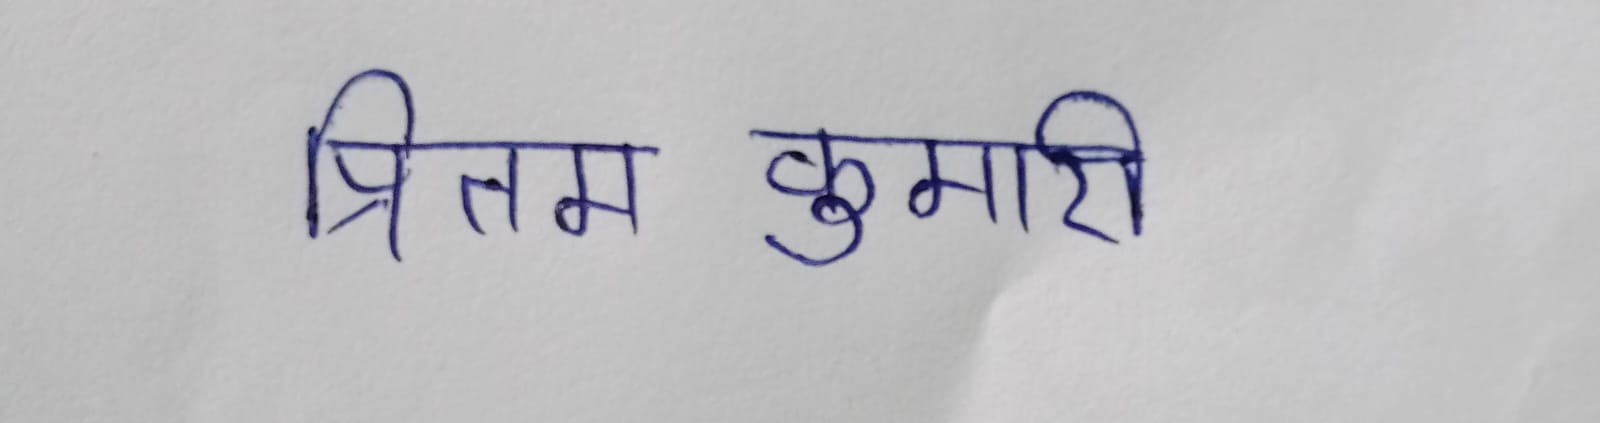 प्रितम कुमारी